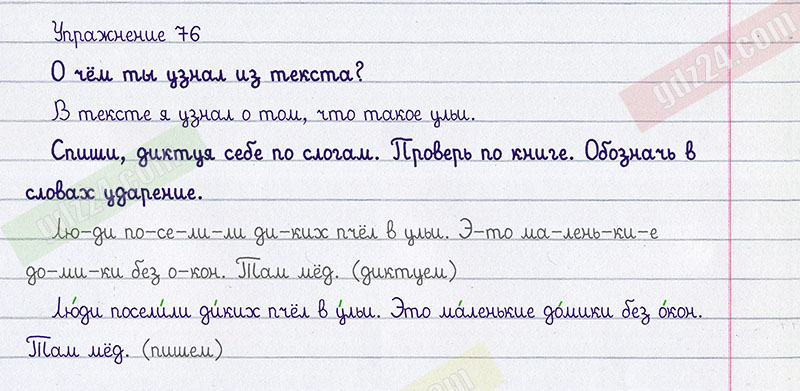 Упражнение 76
О чём ты узнал из текста?
В тексте я узнал о том, что такое ульи.
Спиши, диктуя себе по слогам. Проверь по книге. Обозначь в
словах ударение.
Лю-ди по-се-ли-ли ди-ких пчёл в ульи. Э-то ма-лень-ки-е
до-ми-ки без о-кон. Там мёд. (диктуем)
Лю́ди посели́ли ди́ких пчёл в у́льи. Э́то ма́ленькие до́мики без о́кон.
Там мёд. (пишем)
gdz24.com
gdz24.com
gdz24.com